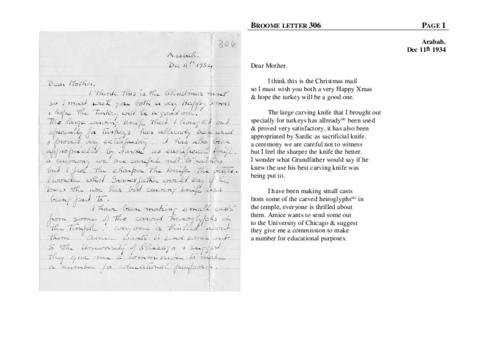 306
Arabah.
Dec 11th 1934
Dear Mother.
I think this is the Christmas mail
so I must wish you both a very Happy Xmas
& hope the turkey will be a good one.
The large carving knife that I brought out
specially for turkeys has allready been used
& proved very satisfactory, it has also been
appropriated by Sardic as sacrificial knife.
a ceremony we are careful not to witness
but I feel the sharper the knife the better.
I wonder what Grandfather would say if he
knew the use his best carving knife was
being put to.
I have been making small casts
from some of the carved heiroglyphs in
the temple, everyone is thrilled about
them. Amice wants to send some out
to the University of Chicago & suggest
they give me a commission to make
a number for educational purposes.
BROOME LETTER 306 PAGE 1
Arabah.
Dec 11th 1934
Dear Mother.
I think this is the Christmas mail
so I must wish you both a very Happy Xmas
& hope the turkey will be a good one.
The large carving knife that I brought out
specially for turkeys has allready(sic) been used
& proved very satisfactory, it has also been
appropriated by Sardic as sacrificial knife.
a ceremony we are careful not to witness
but I feel the sharper the knife the better.
I wonder what Grandfather would say if he
knew the use his best carving knife was
being put to.
I have been making small casts
from some of the carved heiroglyphs(sic) in
the temple, everyone is thrilled about
them. Amice wants to send some out
to the University of Chicago & suggest
they give me a commission to make
a number for educational purposes.